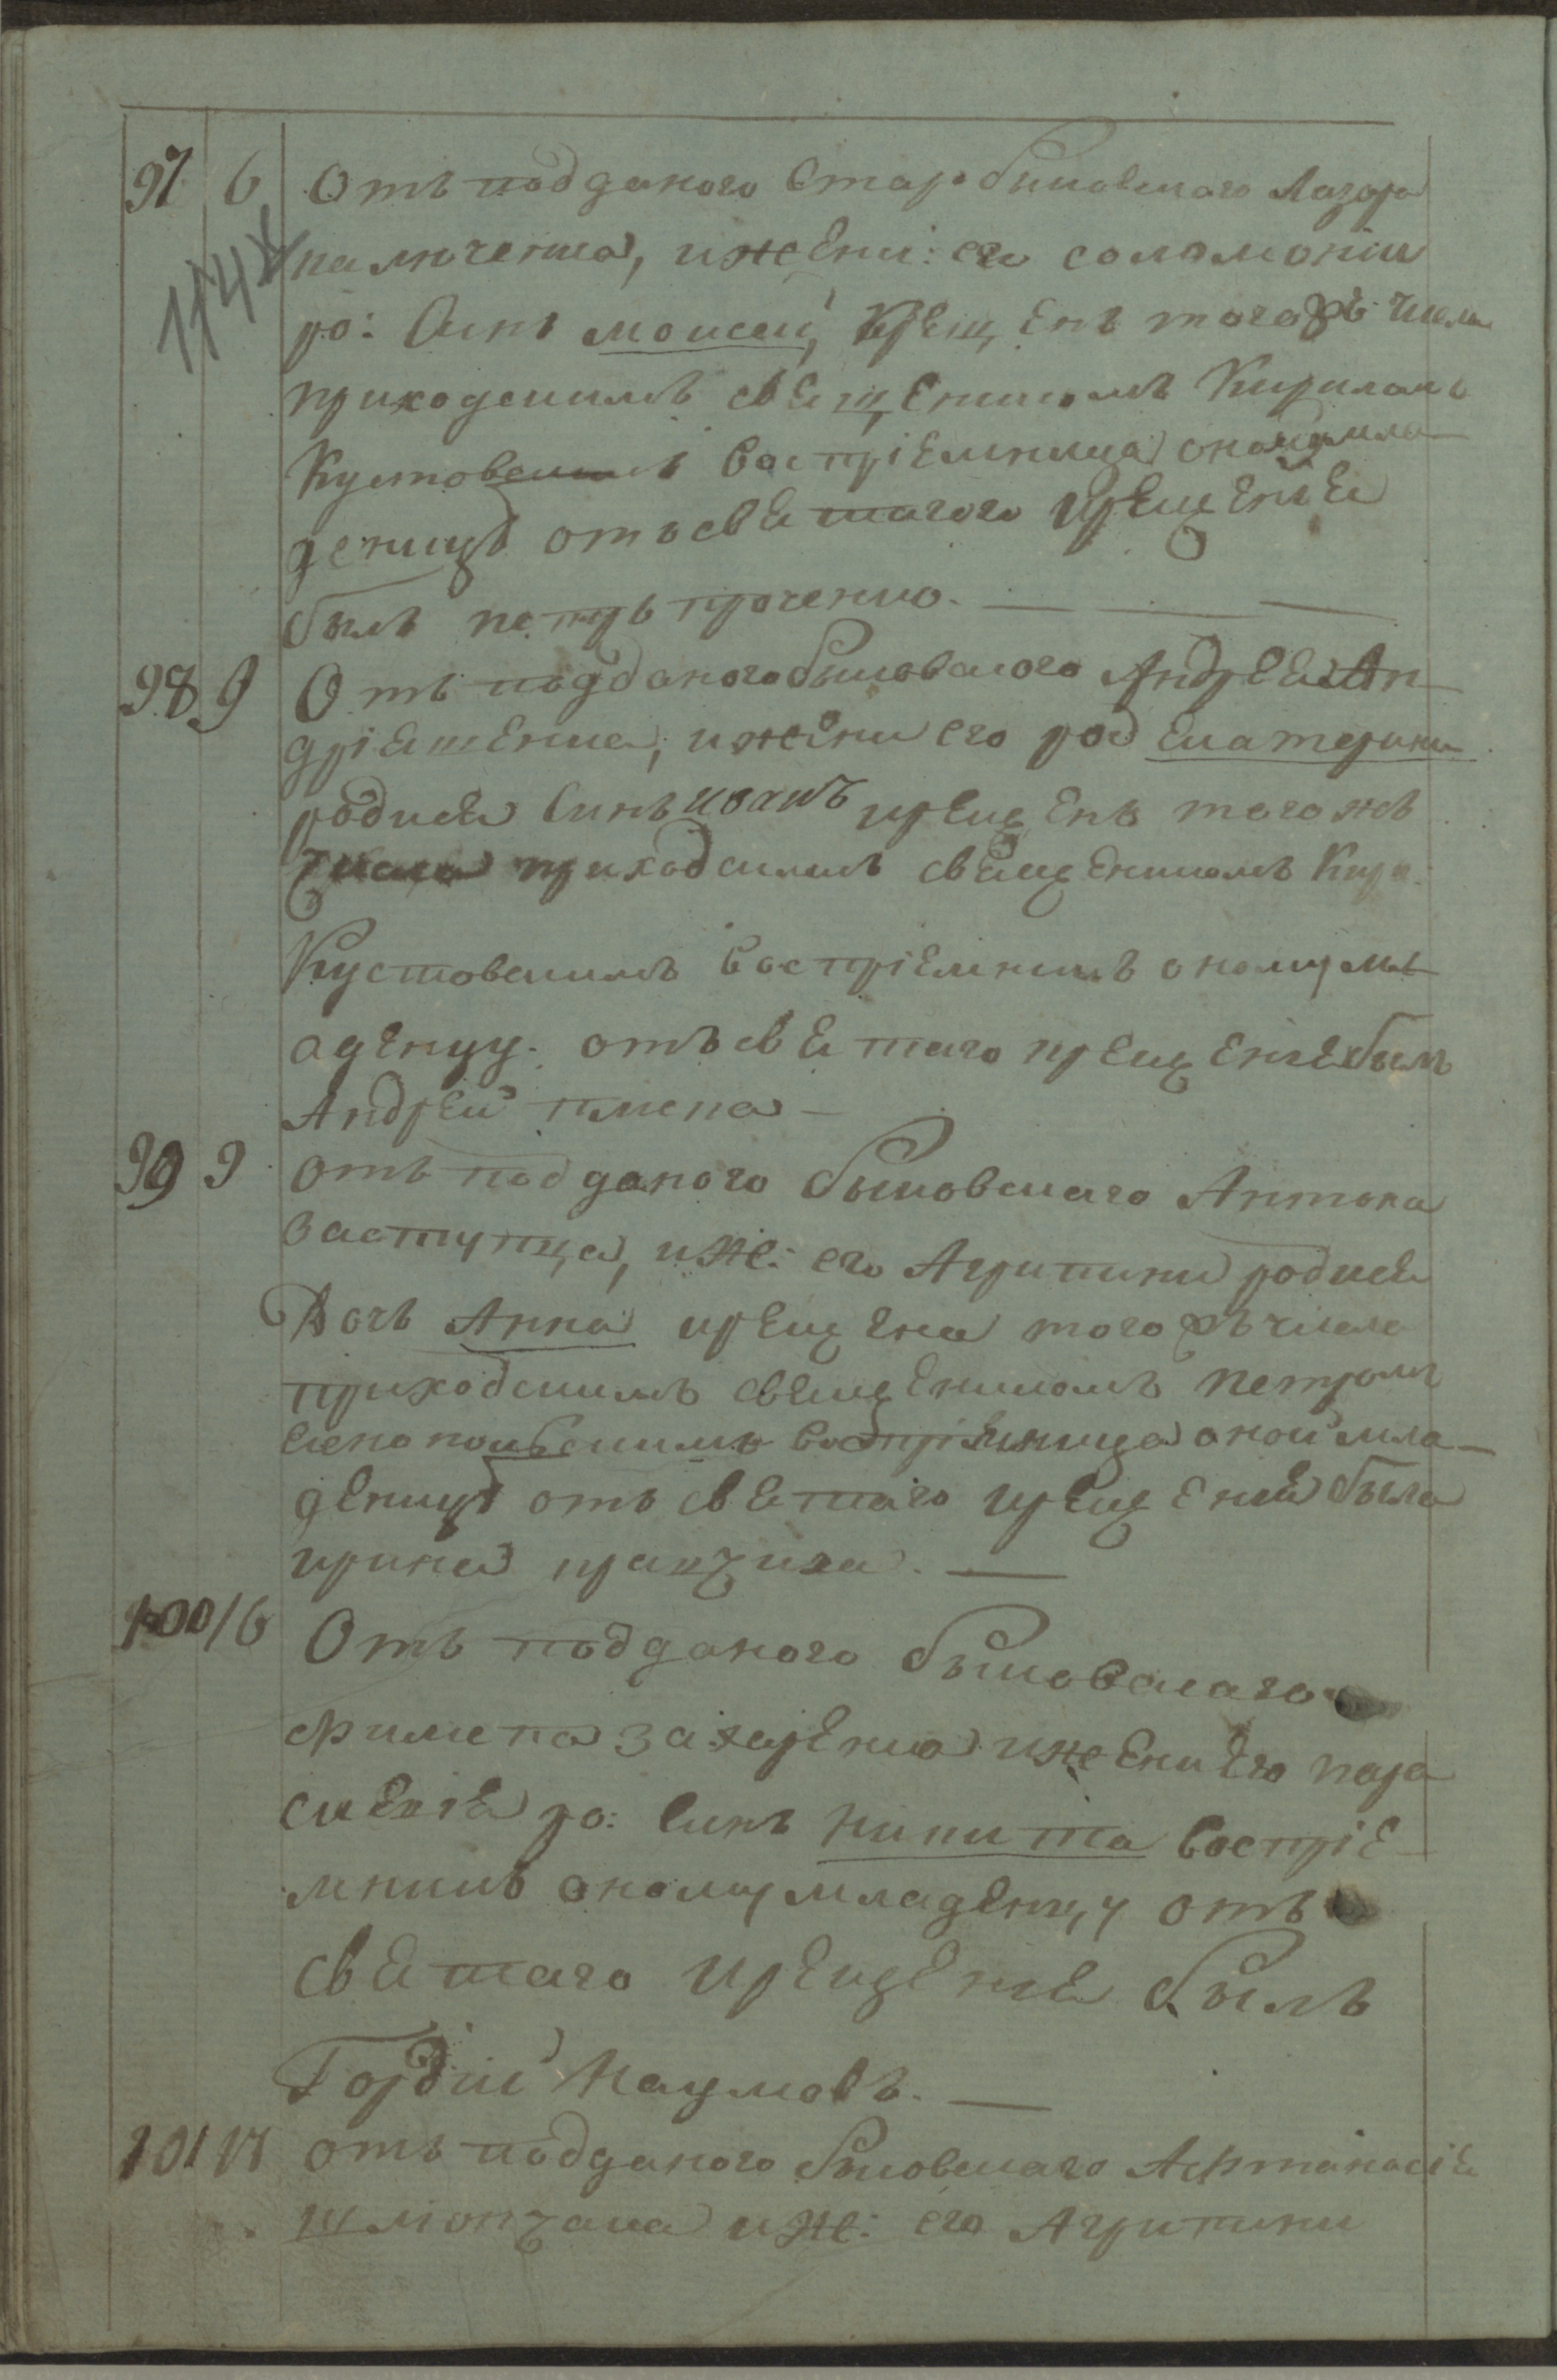 97 6 Отъ подданого Старобиковскаго Лазора
114
жени: его соломонии
ро: Синъ моисей, крещенъ того жъ числа
приходскимъ священикомъ Кириломъ
Кустовскимъ воспріемница оному мла-
денцу отъ святагого крещеніе
былъ петръ
98 9 Отъ подданого быковскаго Андрея Ан-
дріешенка, и жени его род екатерини
родися Синъ иванъ крещенъ того жъ
числа приходскимъ священикомъ Кири:
Кустовскимъ воспріемникъ оному мл-
аденцу. отъ святаго крещеніе былъ
Андрей
99 9 отъ подданого быковскаго Антона
заступца, и же: его Агрипини родися
Дочь Анна крещена того жъ числа
приходскимъ священикомъ петромъ
воспріемница оной мла-
денцу отъ святаго крещения была
ирина
100 16 Отъ подданого быковскаго
филипа захаренка и жени его пара
скевіе ро: Синъ никита воспріе
мникъ оному младенцу отъ
святаго крещение былъ
Гордий Наумовъ.
101 17 отъ подданого быковскаго Афтанасіе
и же: его Агрипини